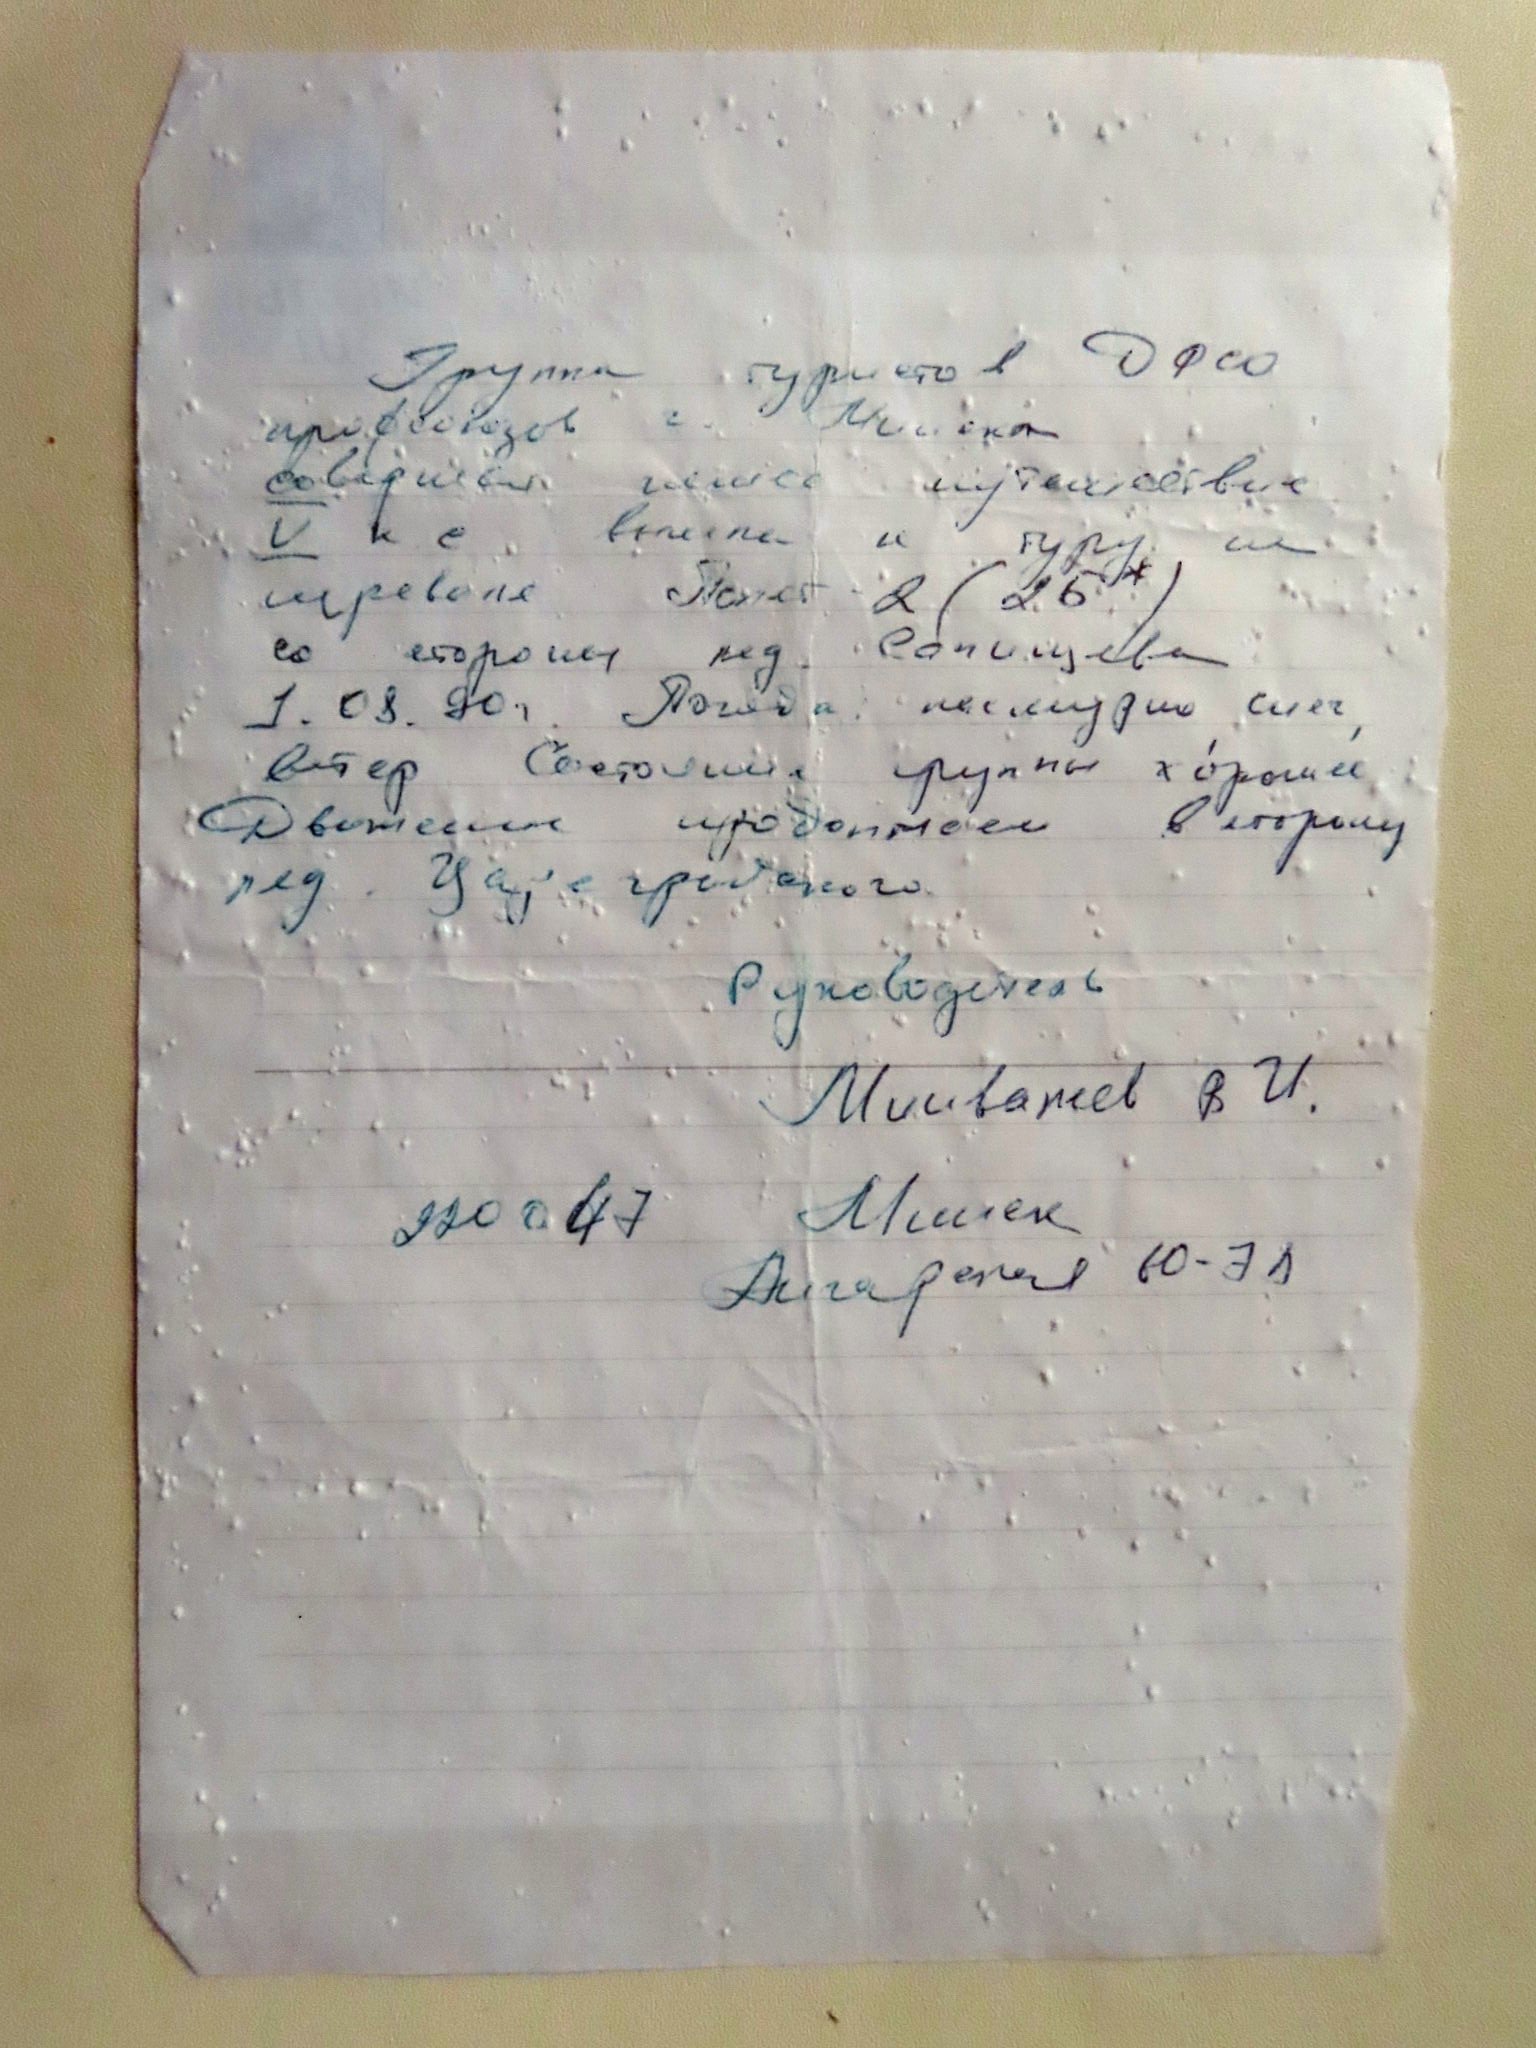 Группа туристов ДФСО
профсоюзов г. Минска
совершая пешее путешествие
V к с вышла к туру на
перевале Полёт 2 (2Б*)
со стороны лед.
1.08.90г. Погода пасмурно снег,
ветер Состояние группы хорошее.
Движение продолжаем в сторону
лед.
Руководитель
В И.
220047 Минск
Ангарская